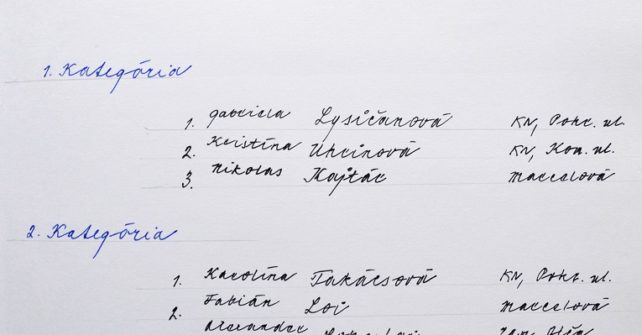 1. Kategória
1. Gabriela Lysičanová KN, Poht. ul.
2. Kristína Uhrinová KN, Kom. ul.
3. Nikolas Kajtár Marcelová
2. Kategória
1. Karolína Takácsová KN, Poht. ul.
2. Fabián Loi Marcelová
Alexander